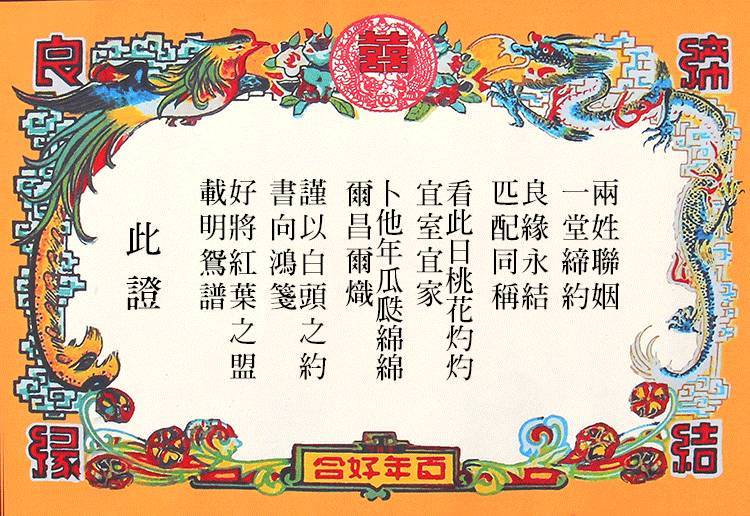 囍
締
結
良
緣
兩姓聯姻
一堂締約
良緣永結
匹配同稱
看此日桃花灼灼
宜室宜家
卜他年瓜瓞綿綿
爾昌爾熾
謹以白頭之約
書向鴻箋
好將紅葉之盟
載明鴛譜
此證
百年好合